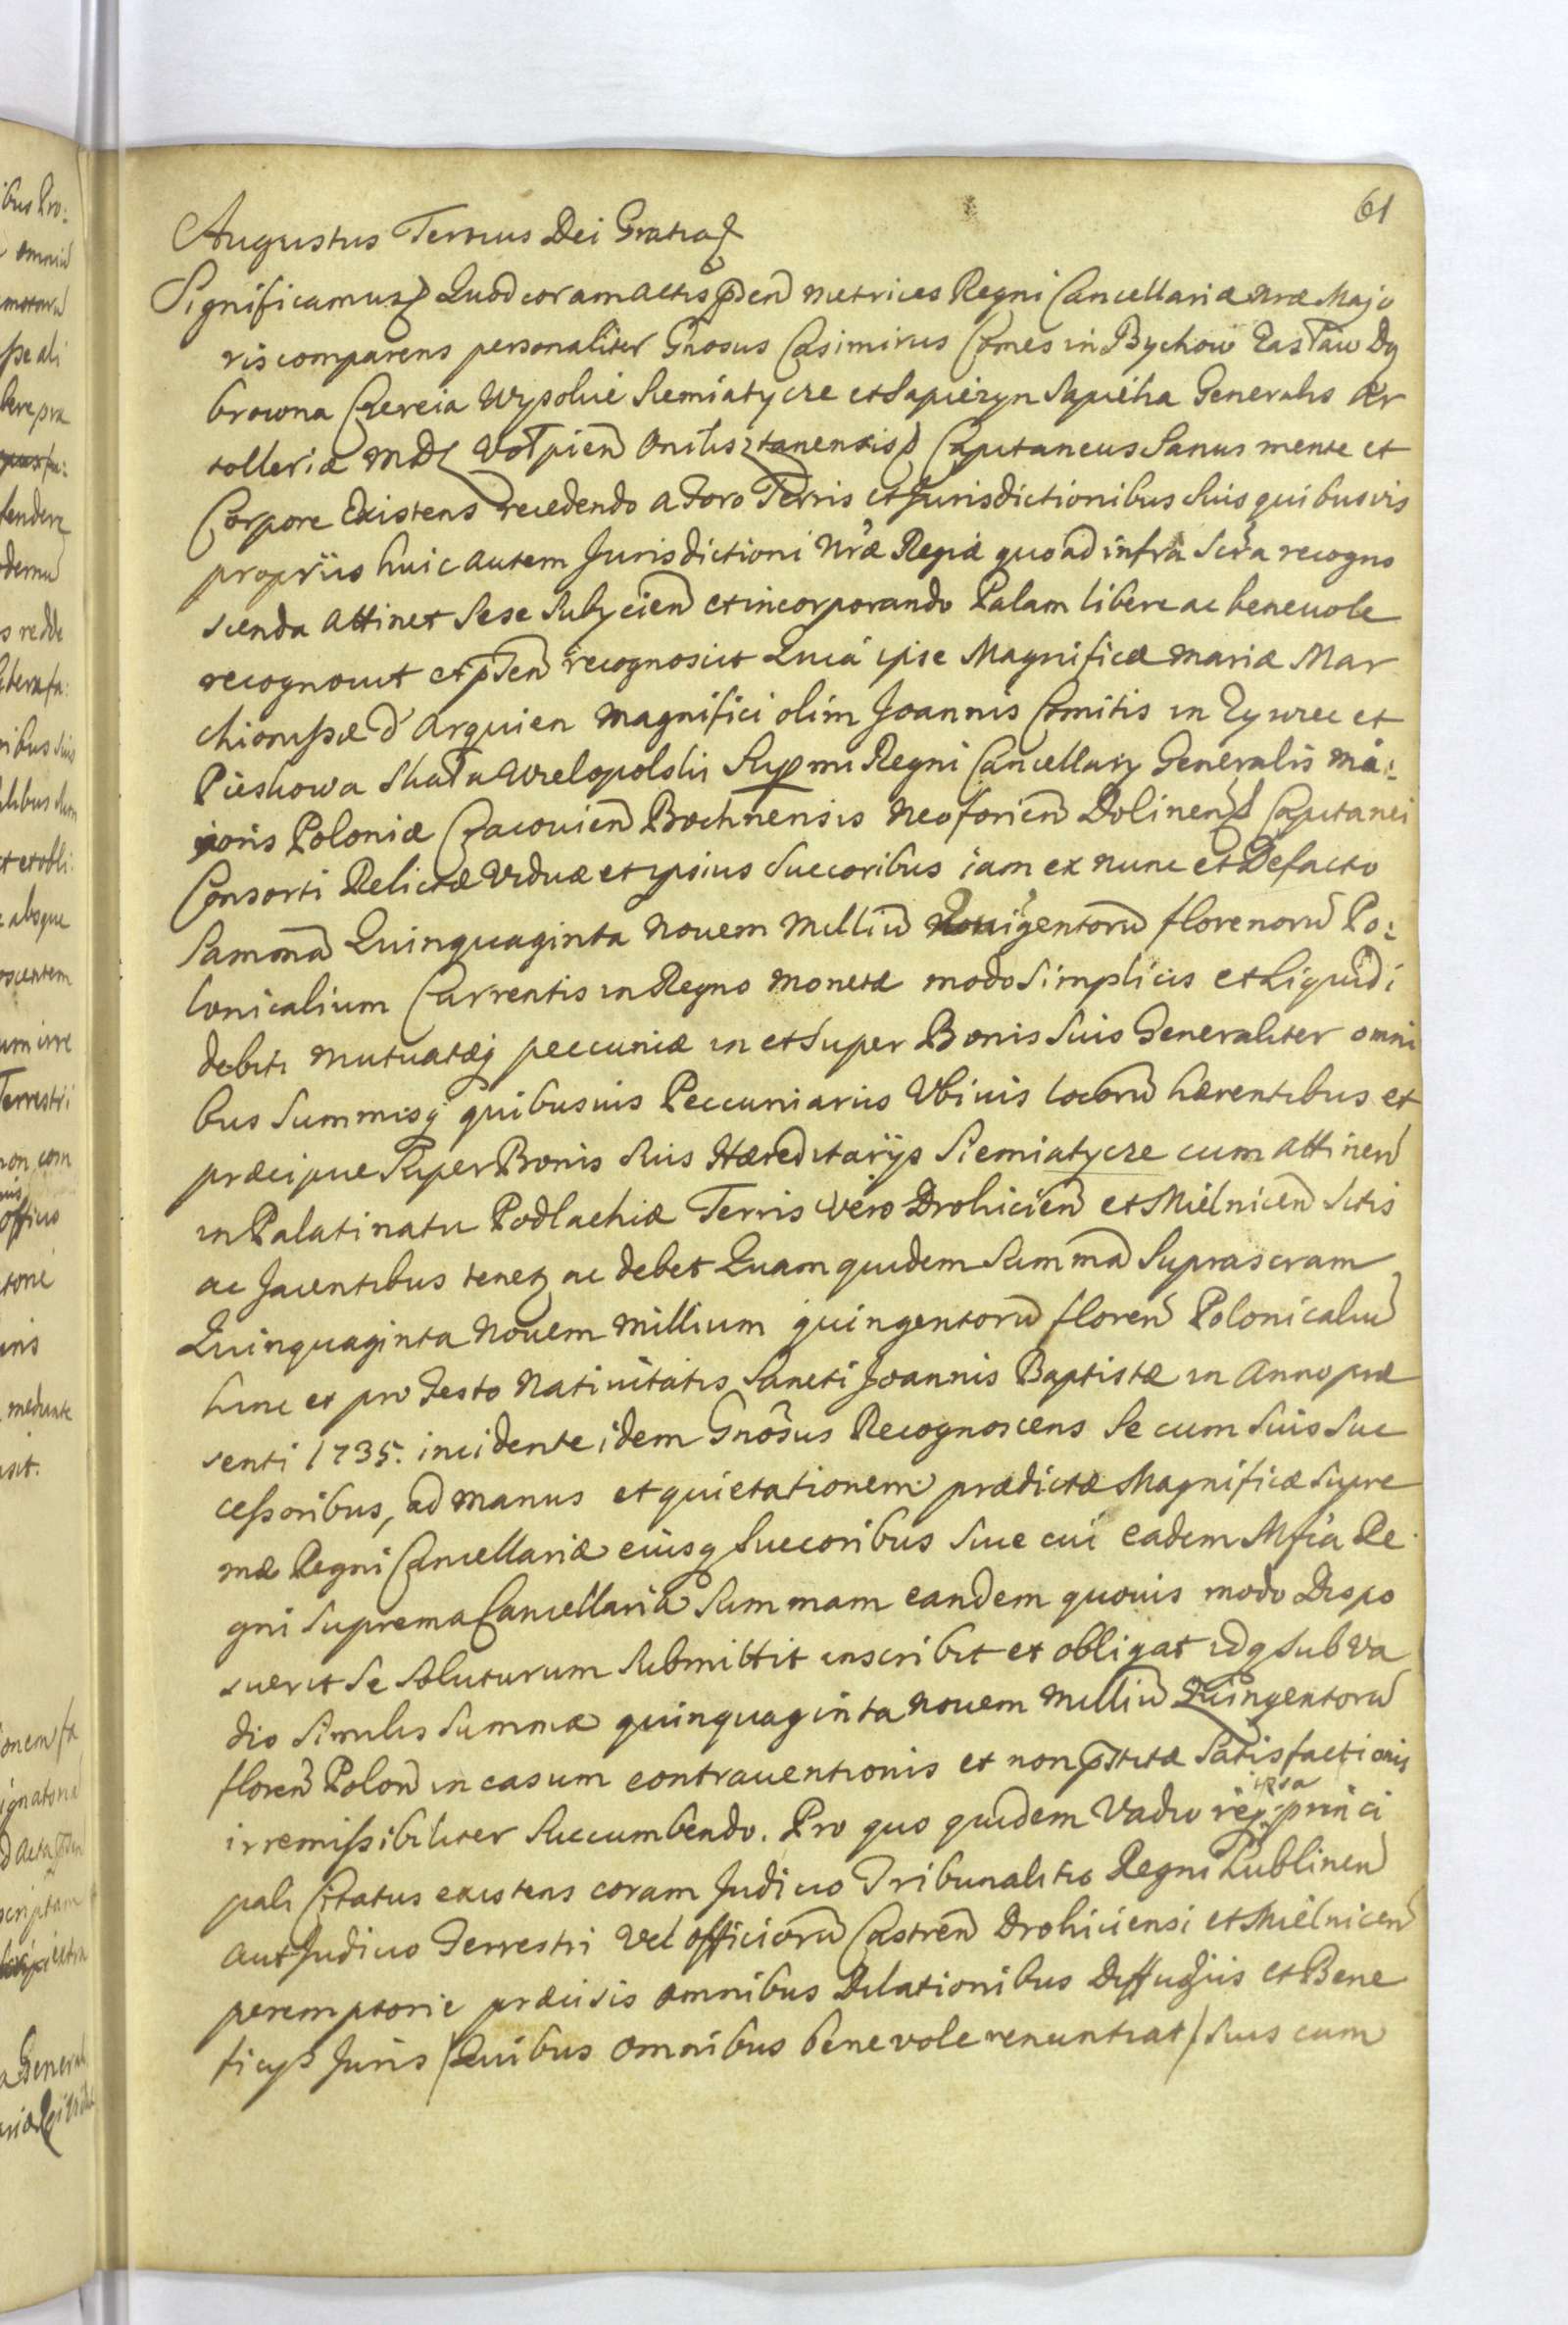 61
Augustus Tertius Dei Gratia
Significamus Quod coram actis pnden Metrices Regni Cancellariæ nræ Majo
ris comparens personaliter Gnosus Casimirus Comes in Bychow Zasław Dą
browna Czereia Wysokie Siemiatycze et Sapiezyn Sapieha Generalis Ar
tolleriæ MDL Wołpien Onikisztanensis Capitaneus Sanus mente et
Corpore Existens recedendo a Foro Terris et Jurisdictionibus suis quibusvis
propriis huic autem Jurisdictioni Nræ Regiæ quoad infra scra recogno
scenda attinet Sese Subjicien et incorporando Palam libere ac beneuole
recognouit et pnten recognoscit Quia ipse Magnificæ Mariæ Mar
chionissæ d'Arquien Magnifici olim Joannis Comitis in Zywiec et
Pieskowa Skała Wielopolski Supmi Regni Cancellarij Generalis Ma:
joris Poloniæ Cracouien Bochnensis Neoforien Dolinen Capitanei
Consorti Relictæ Viduæ et ipsius Succoribus iam ex nunc et Defacto
Summa Quinquaginta Nouem Milliu Quigentoru florenoru Po:
lonicalium Currentis in Regno monetæ modo Simplicis et Liquidi
debiti mutuatæq peccuniæ in et Super Bonis Suis Generaliter omni
bus Summisq quibusuis Peccuniariis Vbiuis locoru hærentibus et
præcipue Super Bonis Suis Hæreditarijs Siemiatycze cum attinen
in Palatinatu Podlachiæ Terris vero Drohicien et Mielnicen Sitis
ac Jacentibus tenez ac debet Quam quidem Summa Suprascram
Quinquaginta Nouem Millium quingentoru floren Polonicaliu
hinc et pro Festo Natiuitatis Sancti Joannis Baptistæ in Anno præ
senti 1735. incidente idem Gnosus Recognoscens Se cum Suis Suc
cessoribus, ad manus et quietationem prædictæ Magnificæ Supre
mæ Regni Cancellariæ eiusq Succoribus Siue cui eadem Mfica Re
gni Suprema Cancellaria Summam eandem quouis modo Dispo
suerit Se Soluturum Submittit inscribit et obligat idq Sub va
dio Similis Summæ quinquaginta Nouem Milliu Quingentoru
floren Polon in casum contrauentionis et non pstitæ Satisfactionis
irremissibiliter Succumbendo. Pro quo quidem Vadio req ipsa princi
pali Citatus existens coram Judicio Tribunalitio Regni Lublinen
aut Judicio Terrestri Vel officioru Castren Drohiciensi et Mielnicen
peremptorie præcisis omnibus Dilationibus Diffugiis et Bene
ficijs Juris (Quibus omnibus beneuole renuntiat) Suis cum